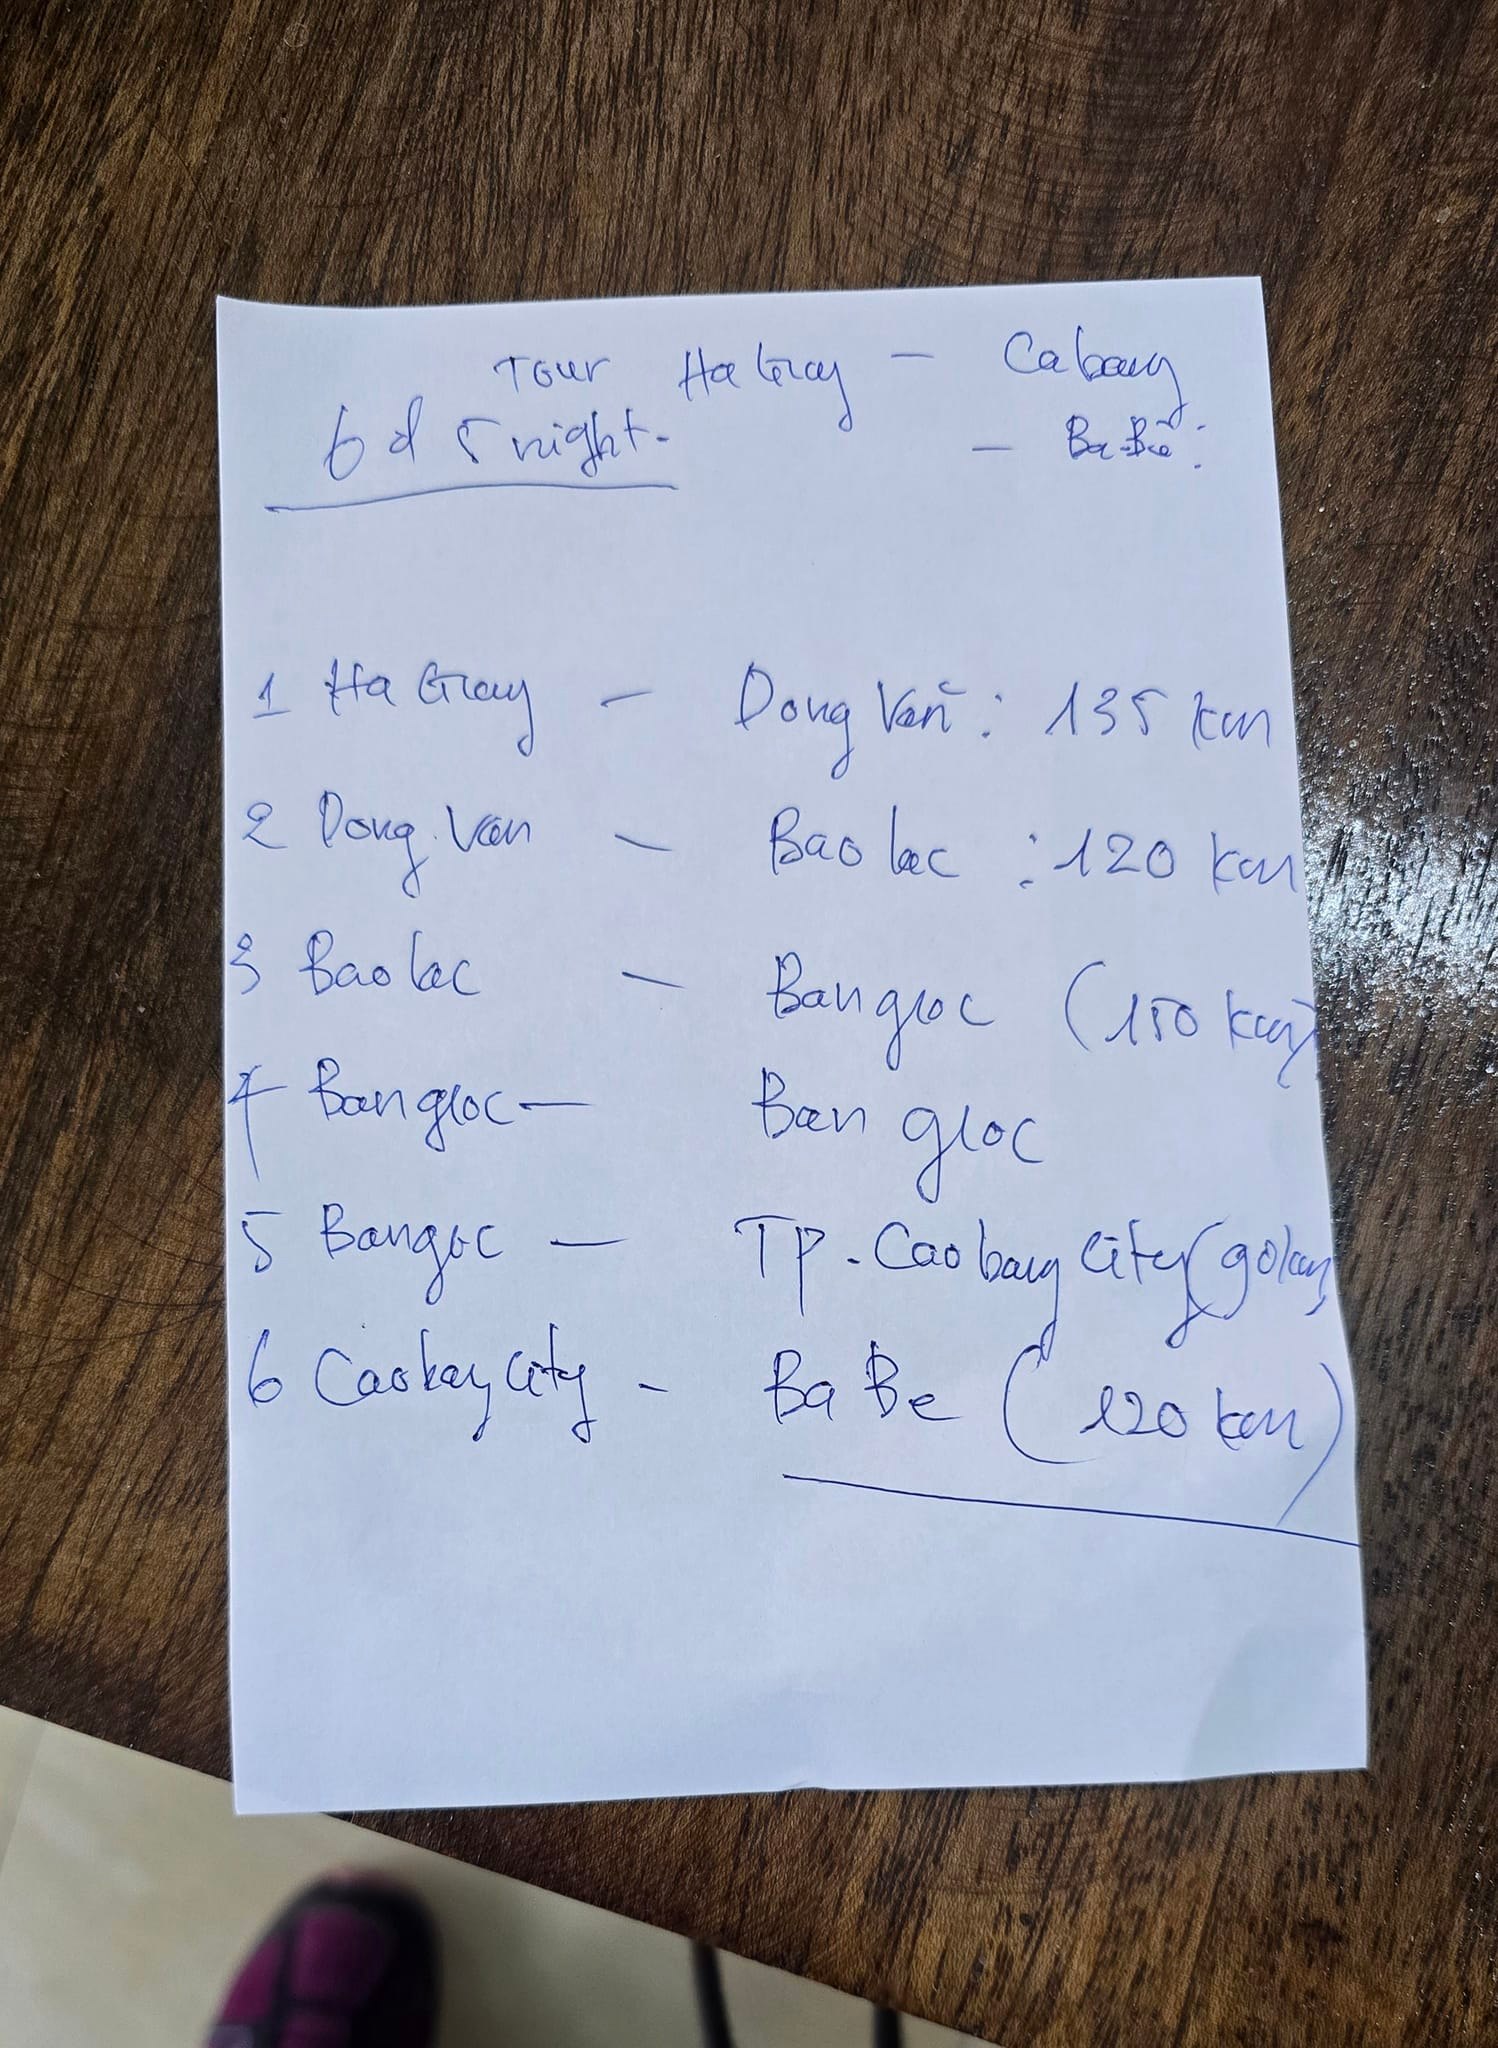 Tour Ha Giang - Cabang
6d 5 night. - Ba Bể:
1 Ha Giang - Dong Văn: 135 km
2 Dong Van - Bao lac : 120 km
3 Bao lac - Bangioc (150 km)
4 Bangioc - Ban gioc
5 Bangoc - TP. Caobang City (90km)
6 Caobang City - Ba Be (120 km)